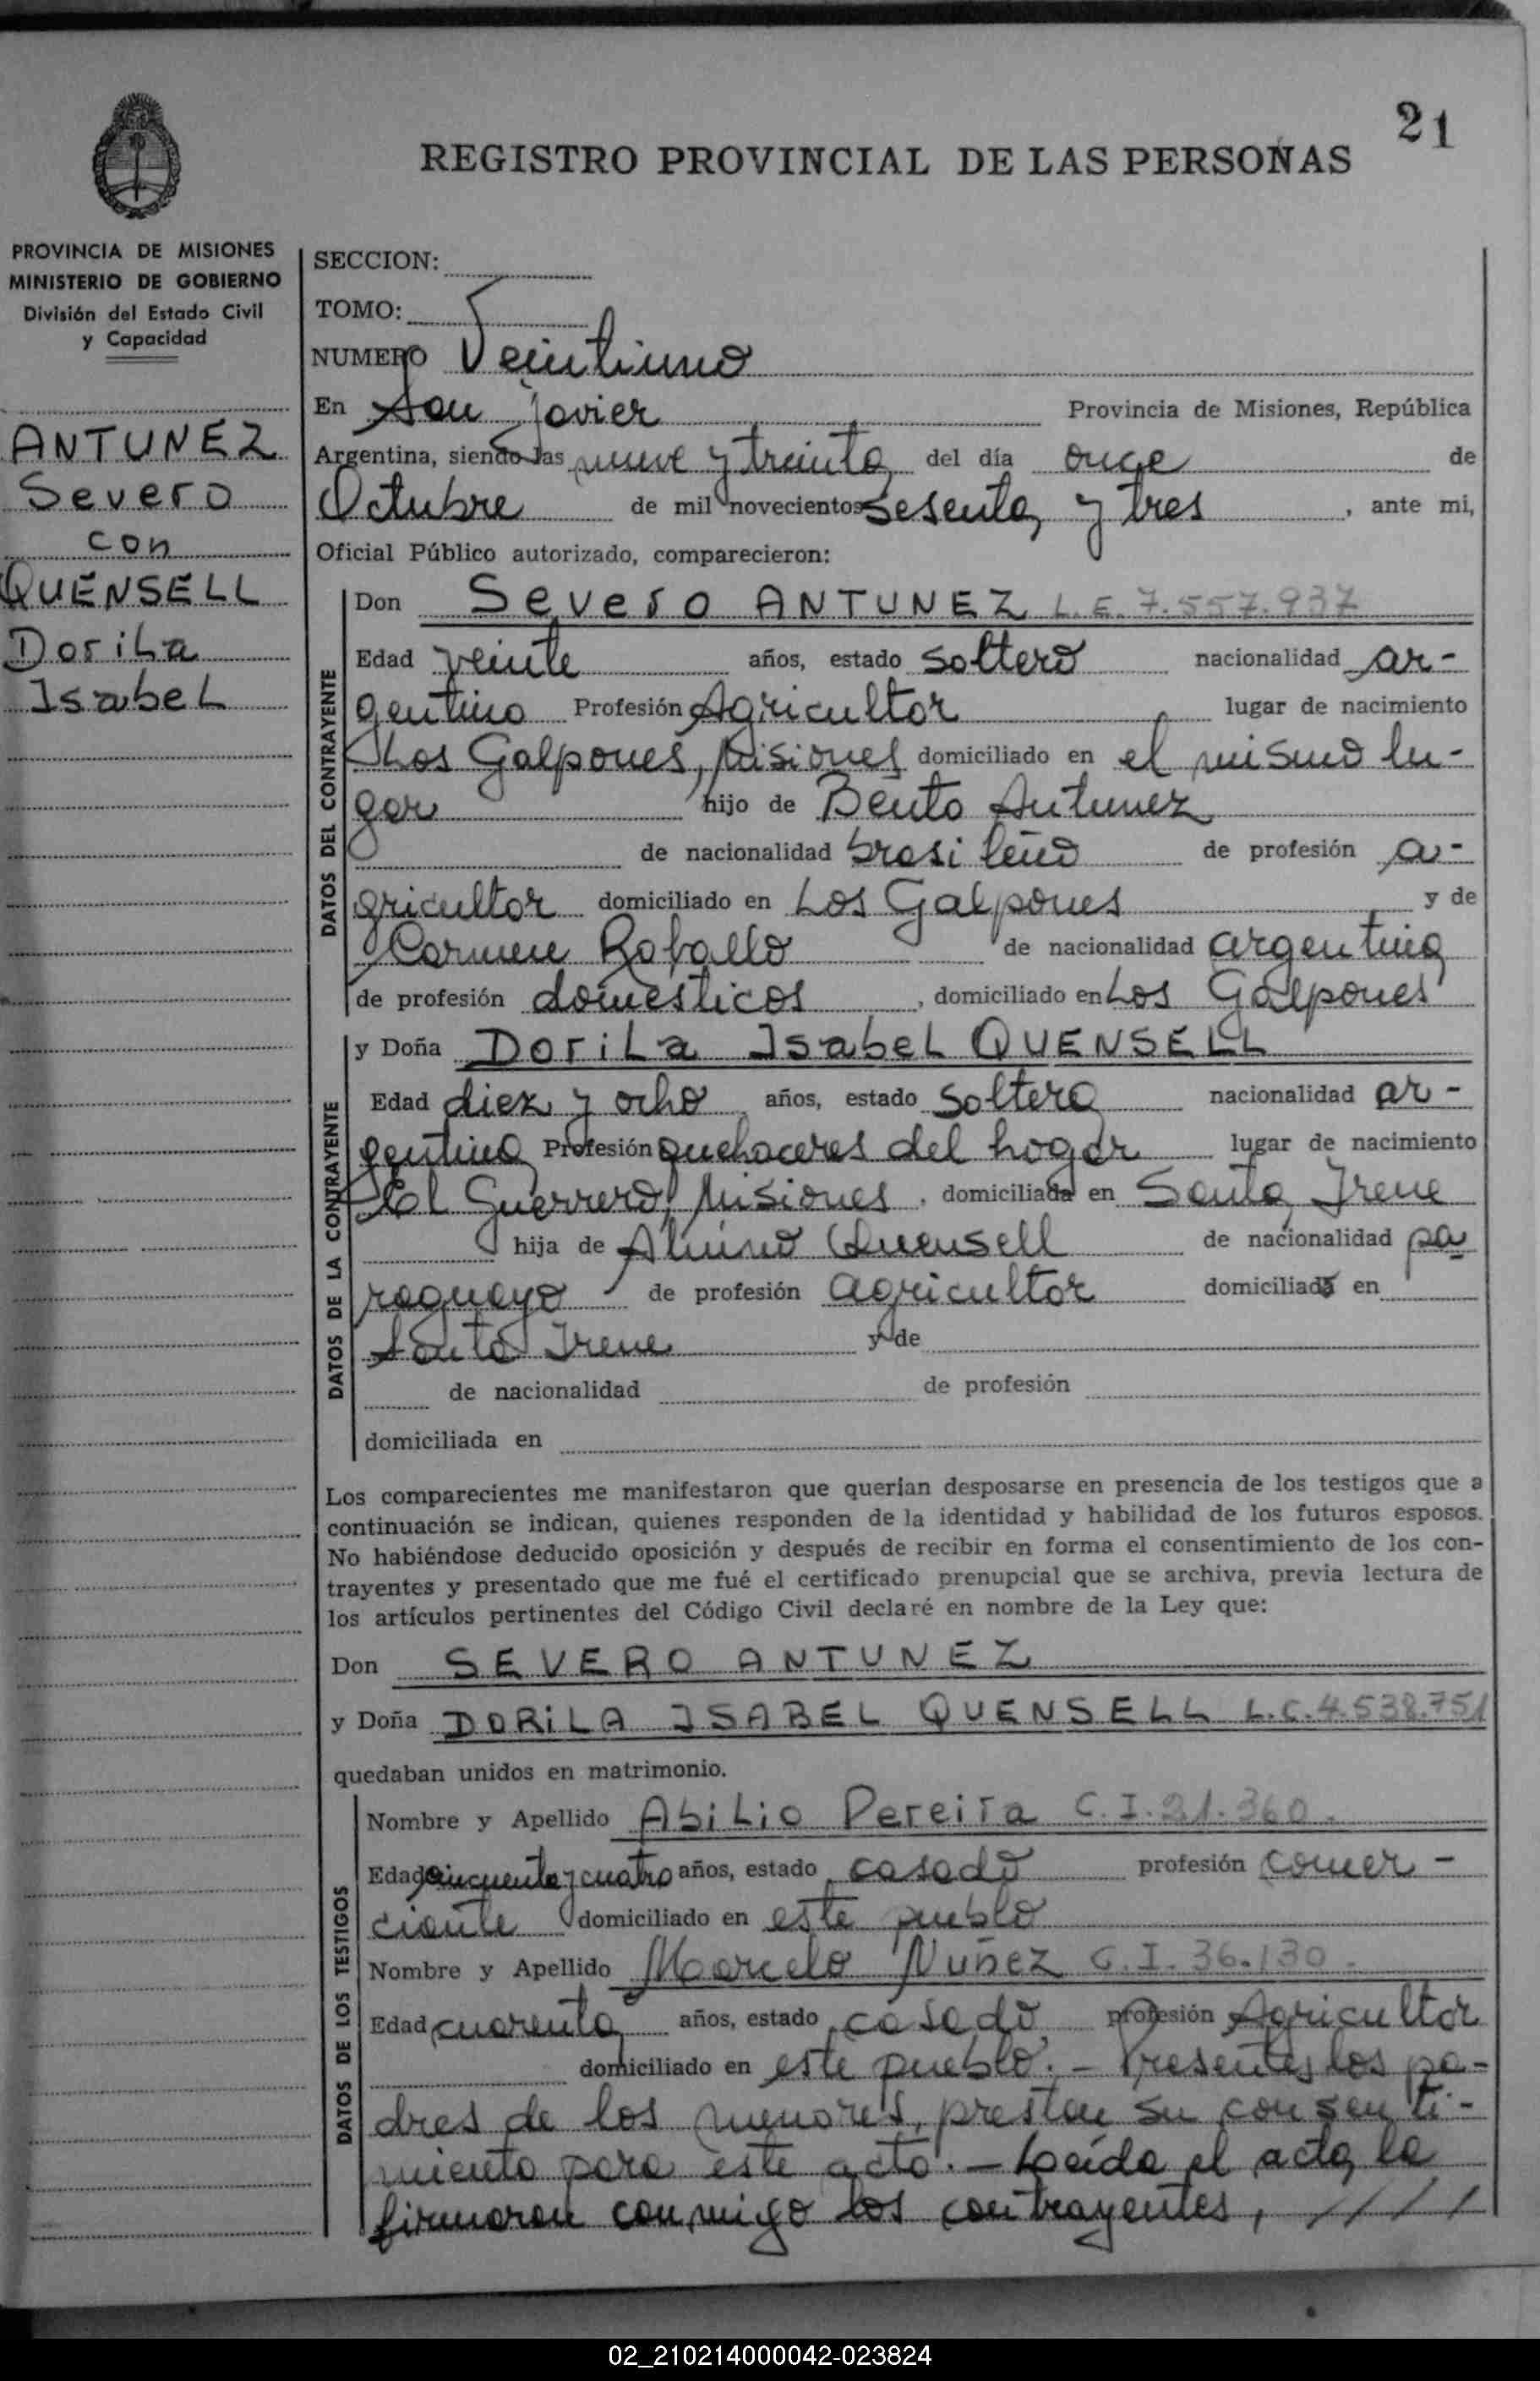 21
REGISTRO PROVINCIAL DE LAS PERSONAS
PROVINCIA DE MISIONES
MINISTERIO DE GOBIERNO
División del Estado Civil
y Capacidad
ANTUNEZ
Severo
con
QUENSELL
Dorila
Isabel
SECCION:
TOMO:
NUMERO Veintiuno
En San Javier Provincia de Misiones, República
Argentina, siendo las nueve y treinta del día once de
Octubre de mil novecientos sesenta y tres, ante mi,
Oficial Público autorizado, comparecieron:
DATOS DEL CONTRAYENTE
Don Severo ANTUNEZ L.E. 7.557.937
Edad veinte años, estado soltero nacionalidad ar-
gentino Profesión Agricultor lugar de nacimiento
Los Galpones, Misiones domiciliado en el mismo lu-
gar hijo de Bento Antunez
de nacionalidad brasileño de profesión a-
gricultor domiciliado en Los Galpones y de
Carmen Raballo de nacionalidad argentina
de profesión domésticos, domiciliado en Los Galpones
DATOS DE LA CONTRAYENTE
y Doña Dorila Isabel QUENSELL
Edad diez y ocho años, estado soltera nacionalidad ar-
gentina Profesión quehaceres del hogar lugar de nacimiento
El Guerrero, Misiones, domiciliada en Santa Irene
hija de Quensell de nacionalidad pa
raguayo de profesión agricultor domiciliado en
Santa Irene y de
de nacionalidad de profesión
domiciliada en
Los comparecientes me manifestaron que querían desposarse en presencia de los testigos que a
continuación se indican, quienes responden de la identidad y habilidad de los futuros esposos.
No habiéndose deducido oposición y después de recibir en forma el consentimiento de los con-
trayentes y presentado que me fué el certificado prenupcial que se archiva, previa lectura de
los artículos pertinentes del Código Civil declaré en nombre de la Ley que:
Don SEVERO ANTUNEZ
y Doña DORILA ISABEL QUENSELL L.C. 4.538.751
quedaban unidos en matrimonio.
DATOS DE LOS TESTIGOS
Nombre y Apellido Abilio Pereira C.I. 21.360.
Edad cincuenta y cuatro años, estado casado profesión comer-
ciante domiciliado en este pueblo
Nombre y Apellido Marcelo Nuñez C.I. 36.130.
Edad cuarenta años, estado casado profesión Agricultor
domiciliado en este pueblo.- Presentes los pa-
dres de los menores, prestan su consenti-
miento para este acto.- Leída el acta, la
firmaron conmigo los contrayentes, ////
02_210214000042-023824